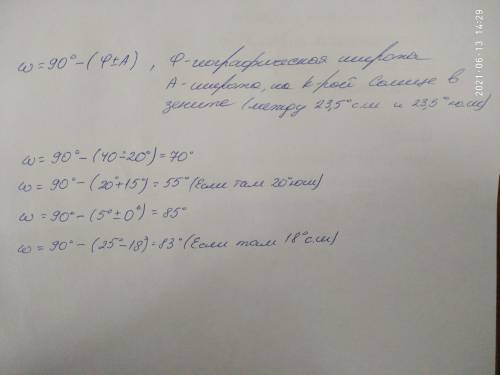 ω = 90° - (φ ± A) , φ - географическая широта
A - широта, на к-рой Солнце в
зените (между 23,5° сш и 23,5° юш)
ω = 90° - (40° - 20°) = 70°
ω = 90° - (20° + 15°) = 55° (Если там 20° юш)
ω = 90° - (5° ± 0°) = 85°
ω = 90° - (25° - 18°) = 83° (Если там 18° сш)
2021-06-13 14:29